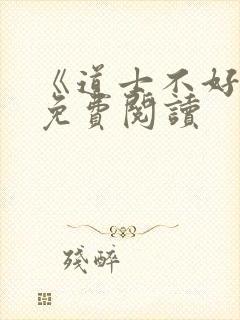 《道士不好
免費閱讀
殘醉